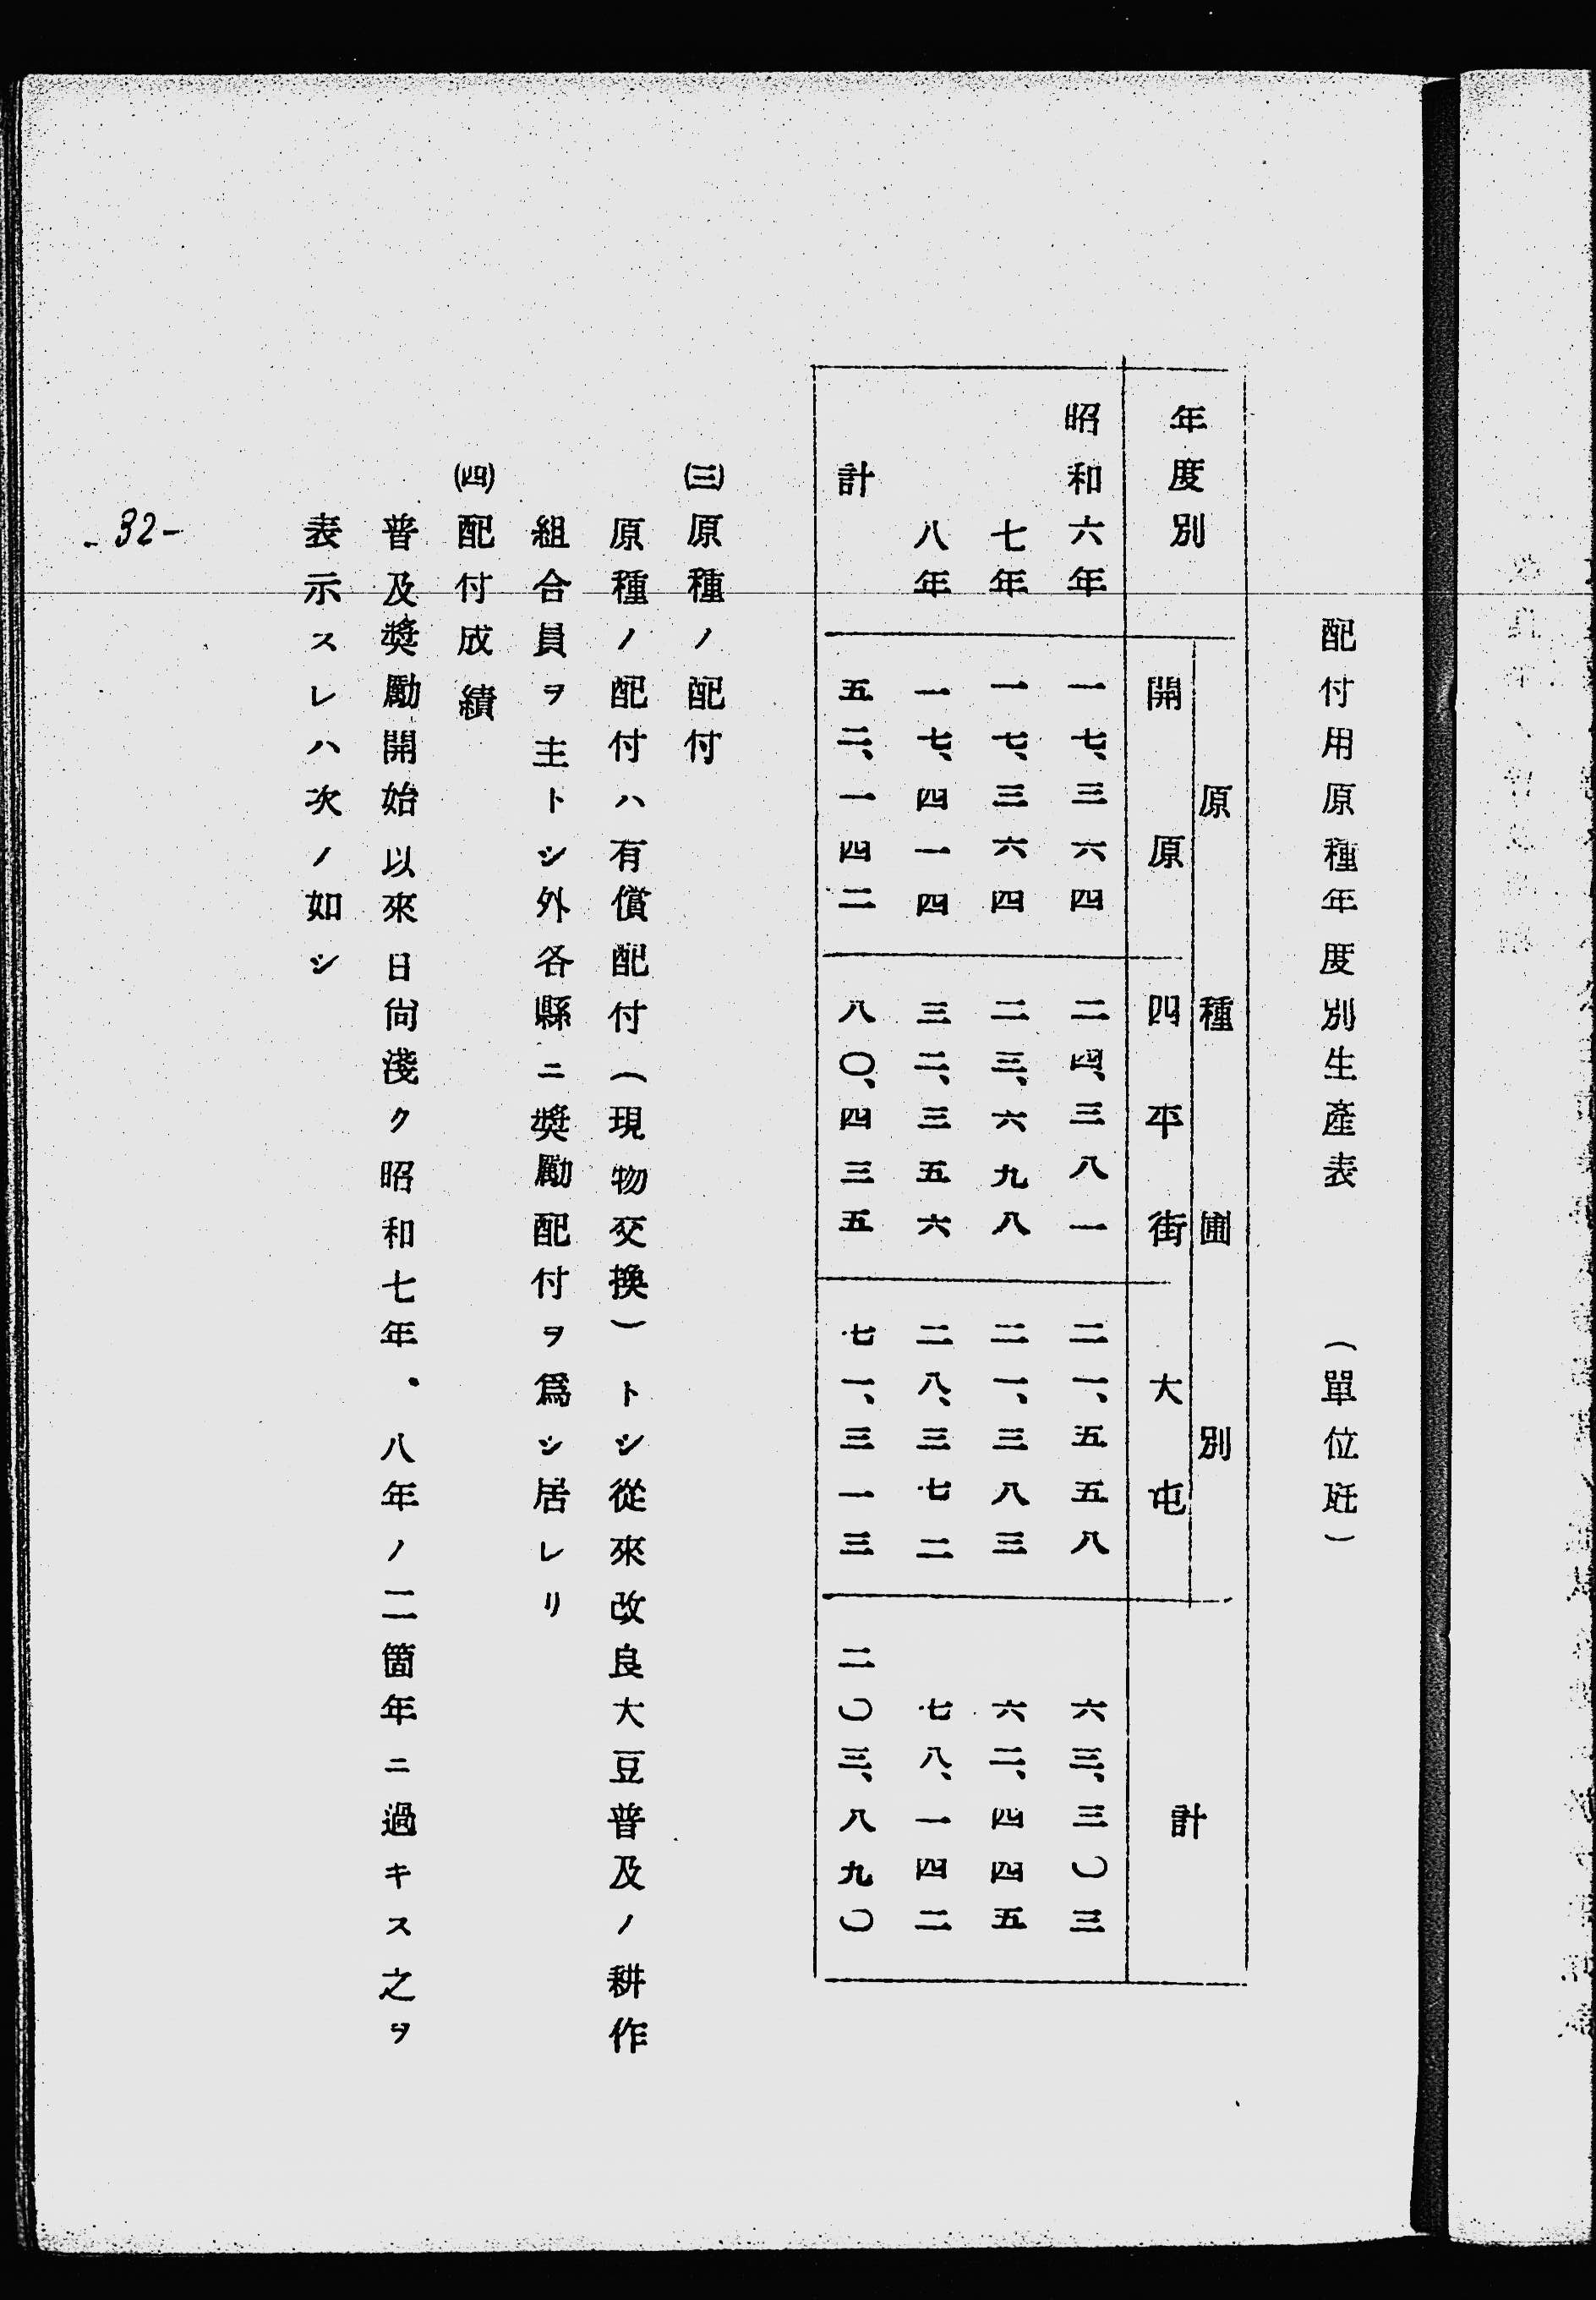 配付用原種年度別生產表　（單位瓩）
年度別　原種圃別　計
開原　四平街　大屯
昭和六年　一七、三六四　二四、三八一　二一、五五八　六三、三〇三
七年　一七、三六四　二三、六九八　二一、三八三　六二、四四五
八年　一七、四一四　三二、三五六　二八、三七二　七八、一四二
計　五二、一四二　八〇、四三五　七一、三一三　二〇三、八九〇
㈢原種ノ配付
原種ノ配付ハ有償配付（現物交換）トシ從來改良大豆普及ノ耕作
組合員ヲ主トシ外各縣ニ奬勵配付ヲ爲シ居レリ
㈣配付成績
普及奬勵開始以來日尙淺ク昭和七年、八年ノ二箇年ニ過キス之ヲ
表示スレハ次ノ如シ
-32-